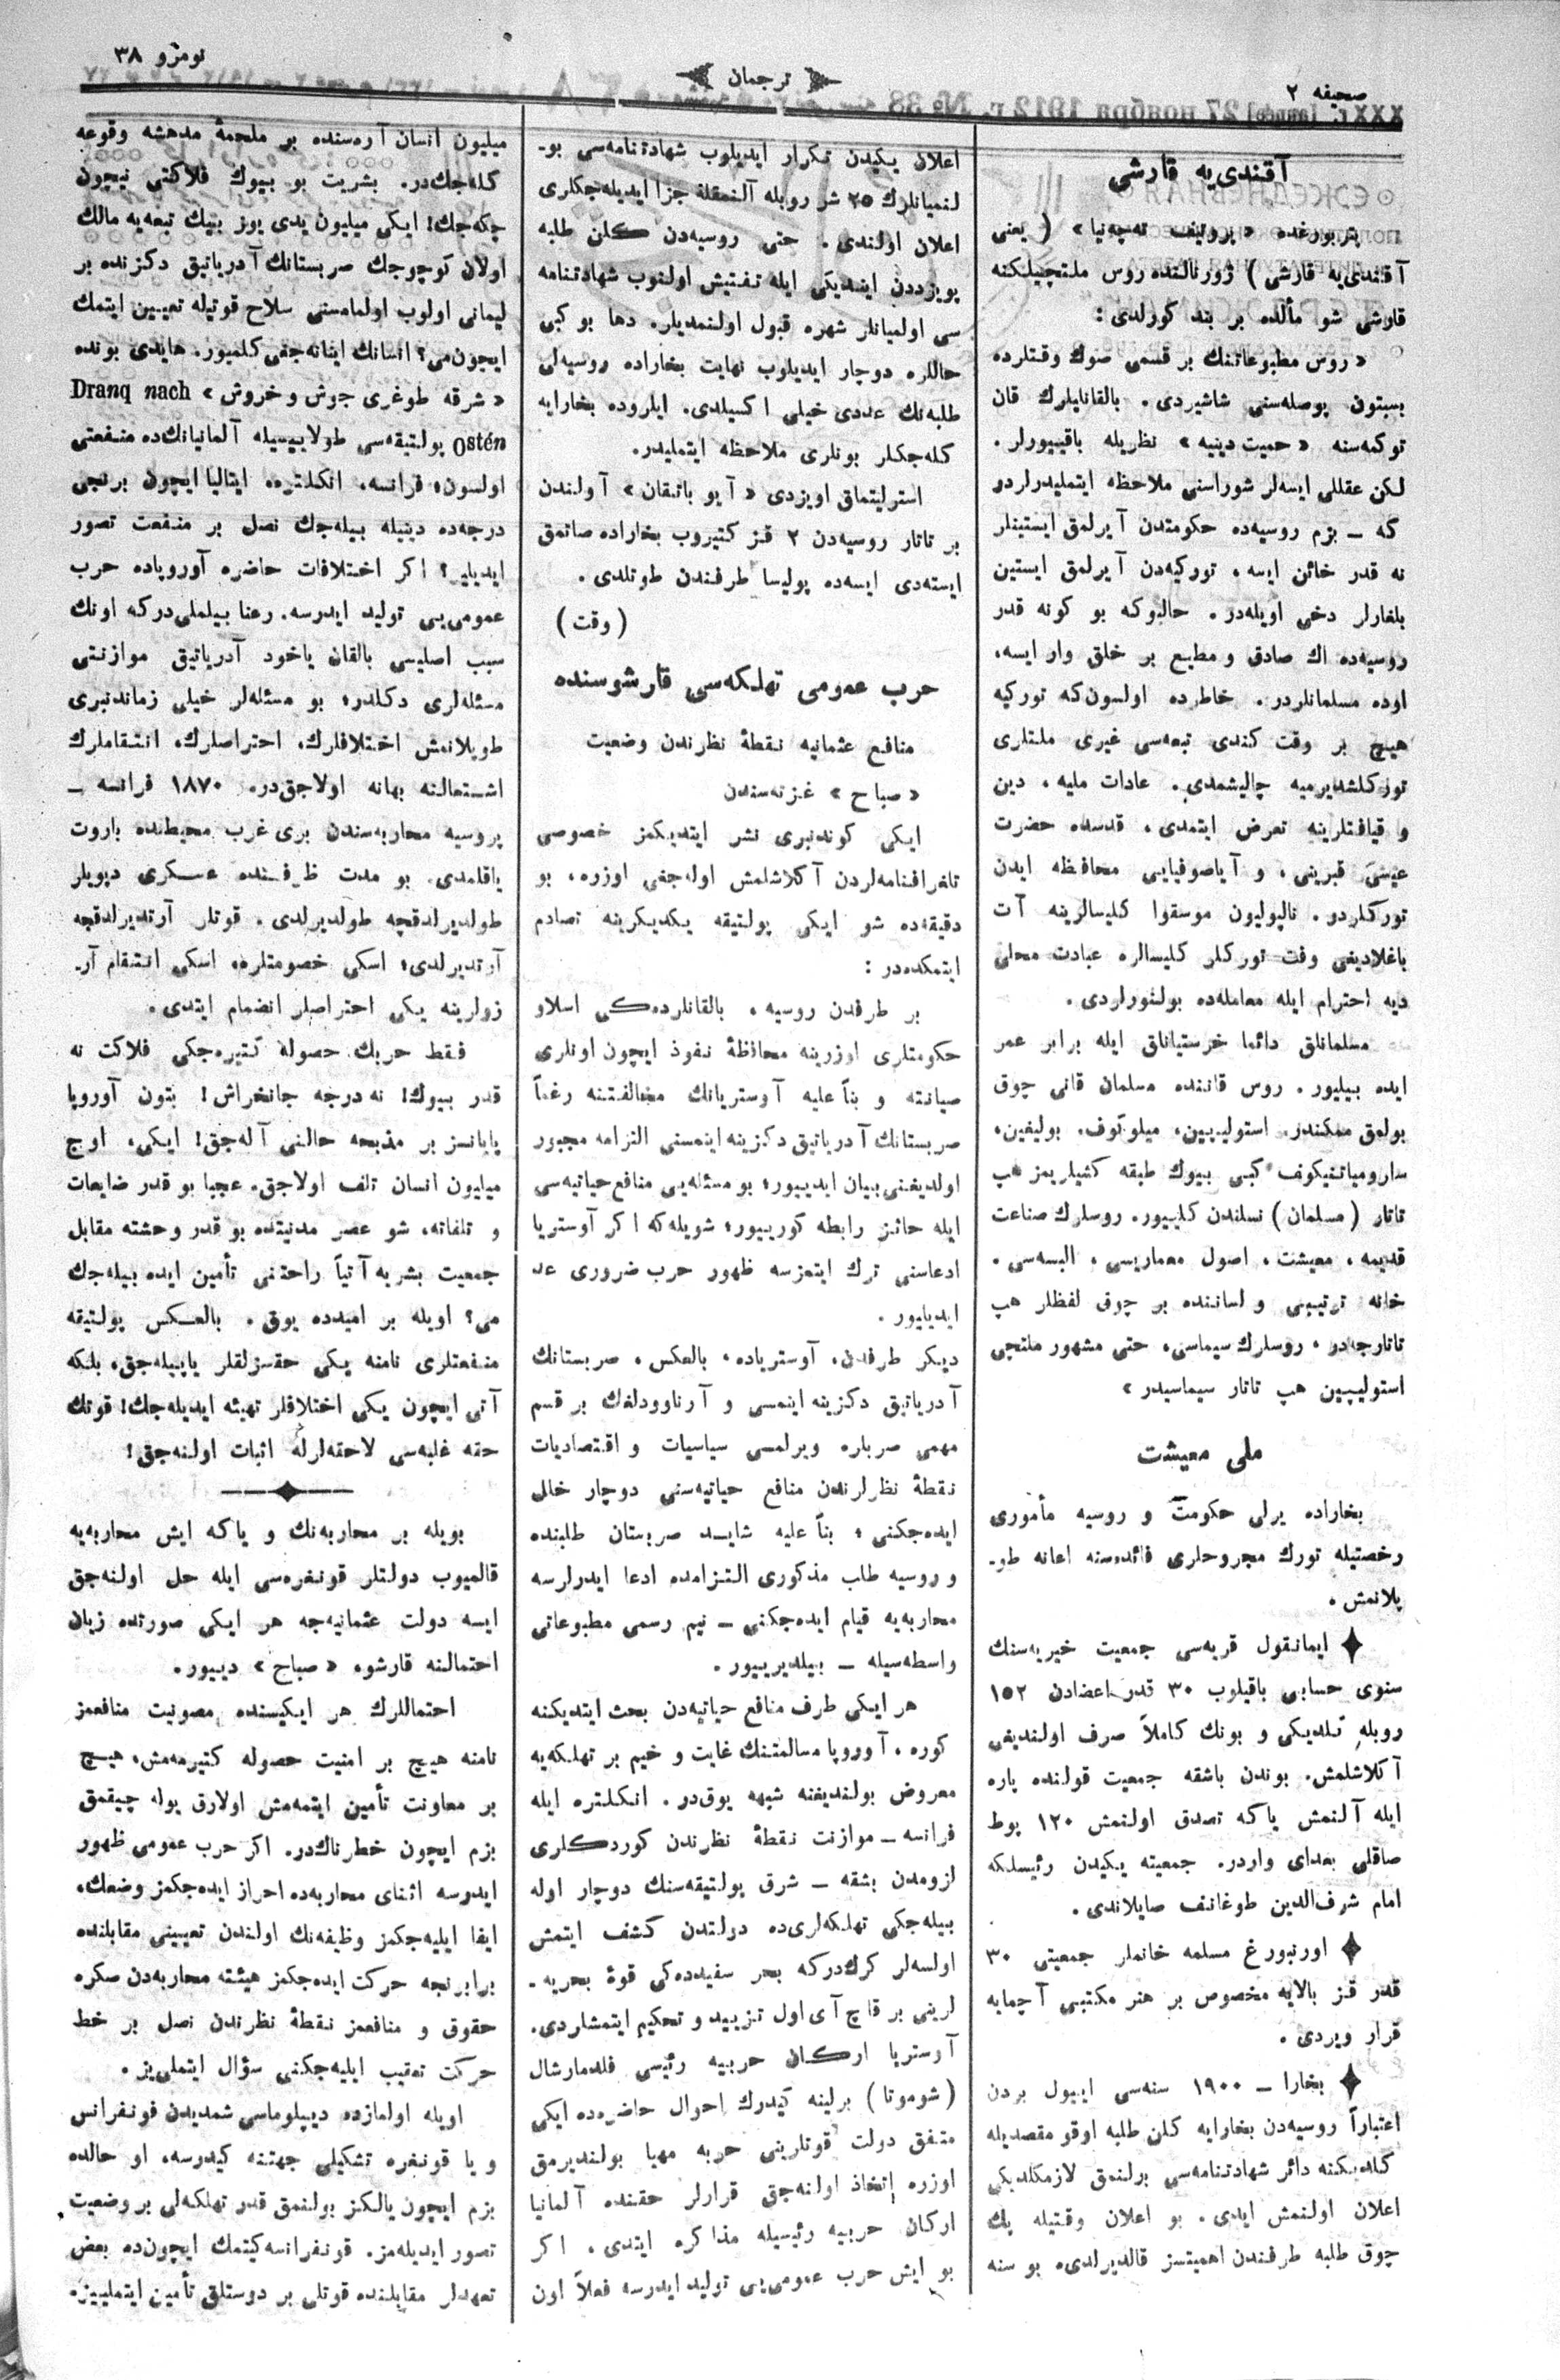 صحیفه ٢
ترجمان
نومرو ٣٨
آقندی‌یه قارشی
پتربورغده «پروتیف ته‌چه‌نیا» (یعنی
آقندی‌یه قارشی) ژورنالنده روس ملتچیلکنه
قارشی شو مألده بر بند کورلدی:
«روس مطبوعاتنك بر قسمی صوك وقتلرده
بسبتون پوصله‌سنی شاشیردی. بالقانلیلرك قان
توکمه‌سنه «حمیت دینیه» نظریله باقییورلر.
لکن عقللی ایسه‌لر شوراسنی ملاحظه ایتملیدرلردر
که ـ بزم روسیه‌ده حکومتدن آیرلمق ایستینلر
نه قدر خائن ایسه، تورکیه‌دن آیرلمق ایستین
بلغارلر دخی اویله‌در. حالبوکه بو کونه قدر
روسیه‌ده اك صادق و مطیع بر خلق وار ایسه،
اوده مسلمانلردر. خاطرده اولسون‌که تورکیه
هیچ بر وقت کندی تبعه‌سی غیری ملتلری
تورکلشدیرمیه چالیشمدی. عادات ملیه، دین
و قیافتلرینه تعرض ایتمدی، قدسده حضرت
عیسیٰ قبرینی، و آیاصوفیایی محافظه ایدن
تورکلردر. ناپولیون موسقوا کلیسالرینه آت
باغلادیغی وقت تورکلر کلیسالره عبادت محلی
دیه احترام ایله معامله‌ده بولنورلردی.
مسلمانلق دائما خرستیانلق ایله برابر عمر
ایده بیلیور. روس قاننده مسلمان قانی چوق
بولمق ممکندر. استولیپین، میلوتوف، بولیغین،
سارومیاتنیکوف کبی بیوك طبقه کشیلریمز هپ
تاتار (مسلمان) نسلندن کلییور. روسلرك صناعت
قدیمه، معیشت، اصول معماریسی، البسه‌سی،
خانه ترتیبی و لساننده بر چوق لفظلر هپ
تاتارجه‌در، روسلرك سیماسی، حتی مشهور ملتچی
استولیپین هپ تاتار سیماسیدر»
ملی معیشت
بخاراده یرلی حکومت و روسیه مأموری
رخصتیله تورك مجروحلری فائده‌سنه اعانه طو-
پلانمش.
ایمانقول قریه‌سی جمعیت خیریه‌سنك
سنوی حسابی باقیلوب ٣٠ قدر اعضادن ١٥٢
روبله کلدیکی و بونك کاملاً صرف اولندیغی
آکلاشلمش. بوندن باشقه جمعیت قولنده پاره
ایله آلنمش یاکه تصدق اولنمش ١٢٠ پوط
صاقلی بغدای واردر. جمعیته یکیدن رئیسلکه
امام شرف‌الدین طوغانف صایلاندی.
اورنبورغ مسلمه خانملر جمعیتی ٣٠
قدر قز بالایه مخصوص بر هنر مکتبی آچمایه
قرار ویردی.
بخارا ـ ١٩٠٠ سنه‌سی اییول بردن
اعتباراً روسیه‌دن بخارایه کلن طلبه اوقو مقصدیله
کلدیکنه دائر شهادتنامه‌سی برلنمق لازمکلدیکی
اعلان اولنمش ایدی. بو اعلان وقتیله پك
چوق طلبه طرفندن اهمیتسز قالدیرلدی، بو سنه
اعلان یکیدن تکرار ایدیلوب شهادتنامه‌سی بو-
لنمیانلرك ٢٥ شر روبله آلنمقله جزا ایدیله‌جکلری
اعلان اولندی. حتی روسیه‌دن کلن طلبه
پویزددن ایندیکی ایله تفتیش اولنوب شهادتنامه
سی اولمیانلر شهره قبول اولنمدیلر. دها بو کبی
حاللره دوچار ایدیلوب نهایت بخاراده روسیه‌لی
طلبه‌نك عددی خیلی اکسیلدی. ایلروده بخارایه
کله‌جکلر بونلری ملاحظه ایتملیدر.
استرلیتماق اویزدی «آیو باتیقان» آولندن
بر تاتار روسیه‌دن ٢ قز کتیروب بخاراده صاتمق
ایسته‌دی ایسه‌ده پولیسا طرفندن طوتلدی.
(وقت)
حرب عمومی تهلکه‌سی قارشوسنده
منافع عثمانیه نقطهٔ نظرندن وضعیت
«صباح» غزته‌سندن
ایکی کوندنبری نشر ایتدیکمز خصوصی
تلغرافنامه‌لردن آکلاشلمش اوله‌جغی اوزره، بو
دقیقه‌ده شو ایکی پولتیقه یکدیکرینه تصادم
ایتمکده‌در:
بر طرفدن روسیه، بالقانلرده‌کی اسلاو
حکومتلری اوزرینه محافظهٔ نفوذ ایچون اونلری
صیانته و بناً علیه آوستریانك مخالفتنه رغماً
صربستانك آدریاتیق دکزینه اینمسنی التزامه مجبور
اولدیغنی بیان ایدییور؛ بو مسئله‌یی منافع حیاتیه‌سی
ایله حائز رابطه کورییور؛ شویله‌که اکر آوستریا
ادعاسنی ترك ایتمزسه ظهور حرب ضروری عد
ایدیلیور.
دیکر طرفدن، آوستریاده، بالعکس، صربستانك
آدریاتیق دکزینه اینمسی و آرناوودلغك بر قسم
مهمی صربلره ویرلمسی سیاسیات و اقتصادیات
نقطهٔ نظرلرندن منافع حیاتیه‌سنی دوچار خلل
ایده‌جکنی؛ بناً علیه شاید صربستان طلبنده
و روسیه طلب مذکوری التزامده ادعا ایدرلرسه
محاربه‌یه قیام ایده‌جکنی ـ نیم رسمی مطبوعاتی
واسطه‌سیله ـ بیلدیرییور.
هر ایکی طرف منافع حیاتیه‌دن بحث ایتدیکنه
کوره، آوروپا مسالمتنك غایت وخیم بر تهلکه‌یه
معروض بولندیغنه شبهه یوق‌در. انکلتره ایله
فرانسه ـ موازنت نقطهٔ نظرندن کوردکلری
لزومدن بشقه ـ شرق پولتیقه‌سنك دوچار اوله
بیله‌جکی تهلکه‌لری‌ده دولتدن کشف ایتمش
اولسه‌لر کرك‌درکه بحر سفیدده‌کی قوهٔ بحریه-
لرینی بر قاچ آی اول تزیید و تحکیم ایتمشلردی.
آوستریا ارکان حربیه رئیسی فلدمارشال
(شوموتا) برلینه کیدرك احوال حاضره‌ده ایکی
متفق دولت قوتلرینی حربه مهیا بولندیرمق
اوزره اتخاذ اولنه‌جق قرارلر حقنده آلمانیا
ارکان حربیه رئیسیله مذاکره ایتدی. اکر
بو ایش حرب عمومی‌یی تولید ایدرسه فعلاً اون
میلیون انسان آره‌سنده بو ملحمهٔ مدهشه وقوعه
کله‌جك‌در. بشریت بو بیوك فلاکتی نیچون
چکه‌جك! ایکی میلیون یدی یوز بیك تبعه‌یه مالك
اولان کوچوجك صربستانك آدریاتیق دکزنده بر
لیمانی اولوب اولمامسنی سلاح قوتیله تعیین ایتمك
ایچون‌می؟ انسانك اینانه‌جغی کلمیور. هایدی بونده
«شرقه طوغری جوش و خروش» Dranq nach
ostén پولتیقه‌سی طولاییسیله آلمانیانك‌ده منفعتی
اولسون؛ فرانسه، انکلتره، ایتالیا ایچون برنجی
درجه‌ده دینیله بیله‌جك نصل بر منفعت تصور
ایدیلیر؟ اکر اختلافات حاضره آوروپاده حرب
عمومی‌یی تولید ایدرسه، رعنا بیلملی‌درکه اونك
سبب اصلیسی بالقان یاخود آدریاتیق موازنتی
مسئله‌لری دکلدر؛ بو مسئله‌لر خیلی زماندنبری
طوپلانمش اختلافلرك، احتراصلرك، انتقاملرك
اشتعالنه بهانه اولاجق‌در. ١٨٧٠ فرانسه ـ
پروسیه محاربه‌سندن بری غرب محیطنده باروت
یاقلمدی. بو مدت ظرفنده عسکری دپولر
طولدیرلدقچه طولدیرلدی. قوتلر آرتدیرلدقچه
آرتدیرلدی؛ اسکی خصومتلره، اسکی انتقام آر-
زولرینه یکی احتراصلر انضمام ایتدی.
فقط حربك حصوله کتیره‌جکی فلاکت نه
قدر بیوك! نه درجه جانخراش! بتون آوروپا
پایانسز بر مذبحه حالنی آله‌جق! ایکی، اوچ
میلیون انسان تلف اولاجق. عجبا بو قدر ضایعات
و تلفاته، شو عصر مدنیتده بو قدر وحشته مقابل
جمعیت بشریه آتیاً راحتنی تأمین ایده بیله‌جك
می؟ اویله بر امیدده یوق. بالعکس پولتیقه
منفعتلری نامنه یکی حقسزلقلر یاپیله‌جق، بلکه
آتی ایچون یکی اختلافلر تهیئه ایدیله‌جك! قوتك
حقه غلبه‌سی لاحقه‌لرله اثبات اولنه‌جق!
بویله بر محاربه‌نك و یاکه ایش محاربه‌یه
قالمیوب دولتلر قونغره‌سی ایله حل اولنه‌جق
ایسه دولت عثمانیه‌جه هر ایکی صورتده زیان
احتمالنه قارشو، «صباح» دییور.
احتماللرك هر ایکیسنده مصونیت منافعمز
نامنه هیچ بر امنیت حصوله کتیرمه‌مش، هیچ
بر معاونت تأمین ایتمه‌مش اولارق یوله چیقمق
بزم ایچون خطرناك‌در. اکر حرب عمومی ظهور
ایدرسه اثنای محاربه‌ده احراز ایده‌جکمز وضعك،
ایفا ایلیه‌جکمز وظیفه‌نك اولندن تعیینی مقابلنده
برابرنجه حرکت ایده‌جکمز هیئته محاربه‌دن صکره
حقوق و منافعمز نقطهٔ نظرندن نصل بر خط
حرکت تعقیب ایلیه‌جکنی سؤال ایتملی‌یز.
اویله اولمازده دیپلوماسی شمدیدن قونفرانس
و یا قونغره تشکیلی جهتنه کیدرسه، او حالده
بزم ایچون یالکز بولنمق قدر تهلکه‌لی بر وضعیت
تصور ایدیله‌مز. قونفرانسه کیتمك ایچون‌ده بعض
تعهدلر مقابلنده قوتلی بر دوستلق تأمین ایتملی‌یز.